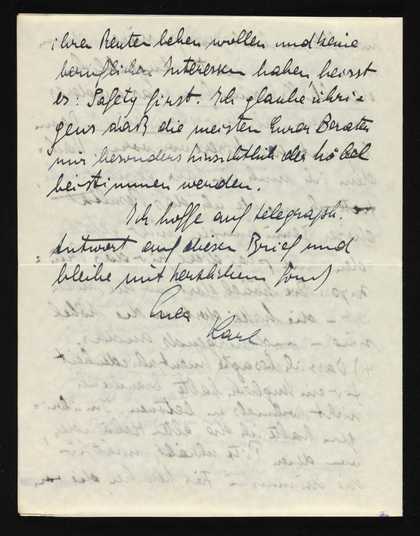 ihrer Renten leben wollen und keine
beruflichen Interessen haben heisst
es: Safety first. Ich glaube übri-
gens daß die meisten Eurer Berater
mir besonders hinsichtlich der Möbel
beistimmen werden.
Ich hoffe auf telegraph.
Antwort auf diesen Brief und
bleibe mit herzlichem Gruß
Euer
Karl